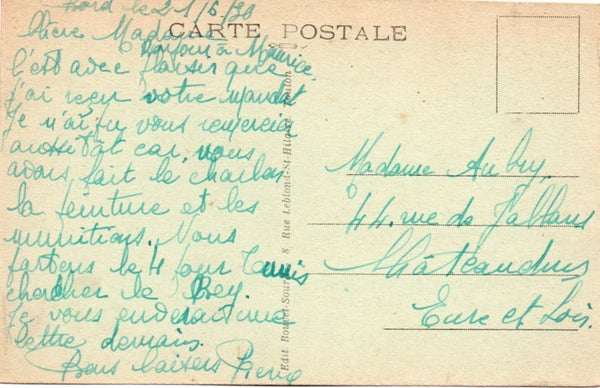 Bord le 21/6/30
CARTE POSTALE
Chère Madame
Bonjour à Maurice.
C'est avec plaisir que
j'ai reçu votre mandat
Je n'ai pu vous remercier
aussitôt car nous
avons fait le charbon
la peinture et les
munitions. Nous
partons le 4 pour Tunis
chercher le Bey.
Je vous enverrai une
lettre demain.
Bons baisers Pierre
Edit. Bouvet-Sourd, 8, Rue Leblond-St-Hilaire, Toulon
Madame Aubry,
44. rue de Jallans
Châteaudun
Eure et Loir.